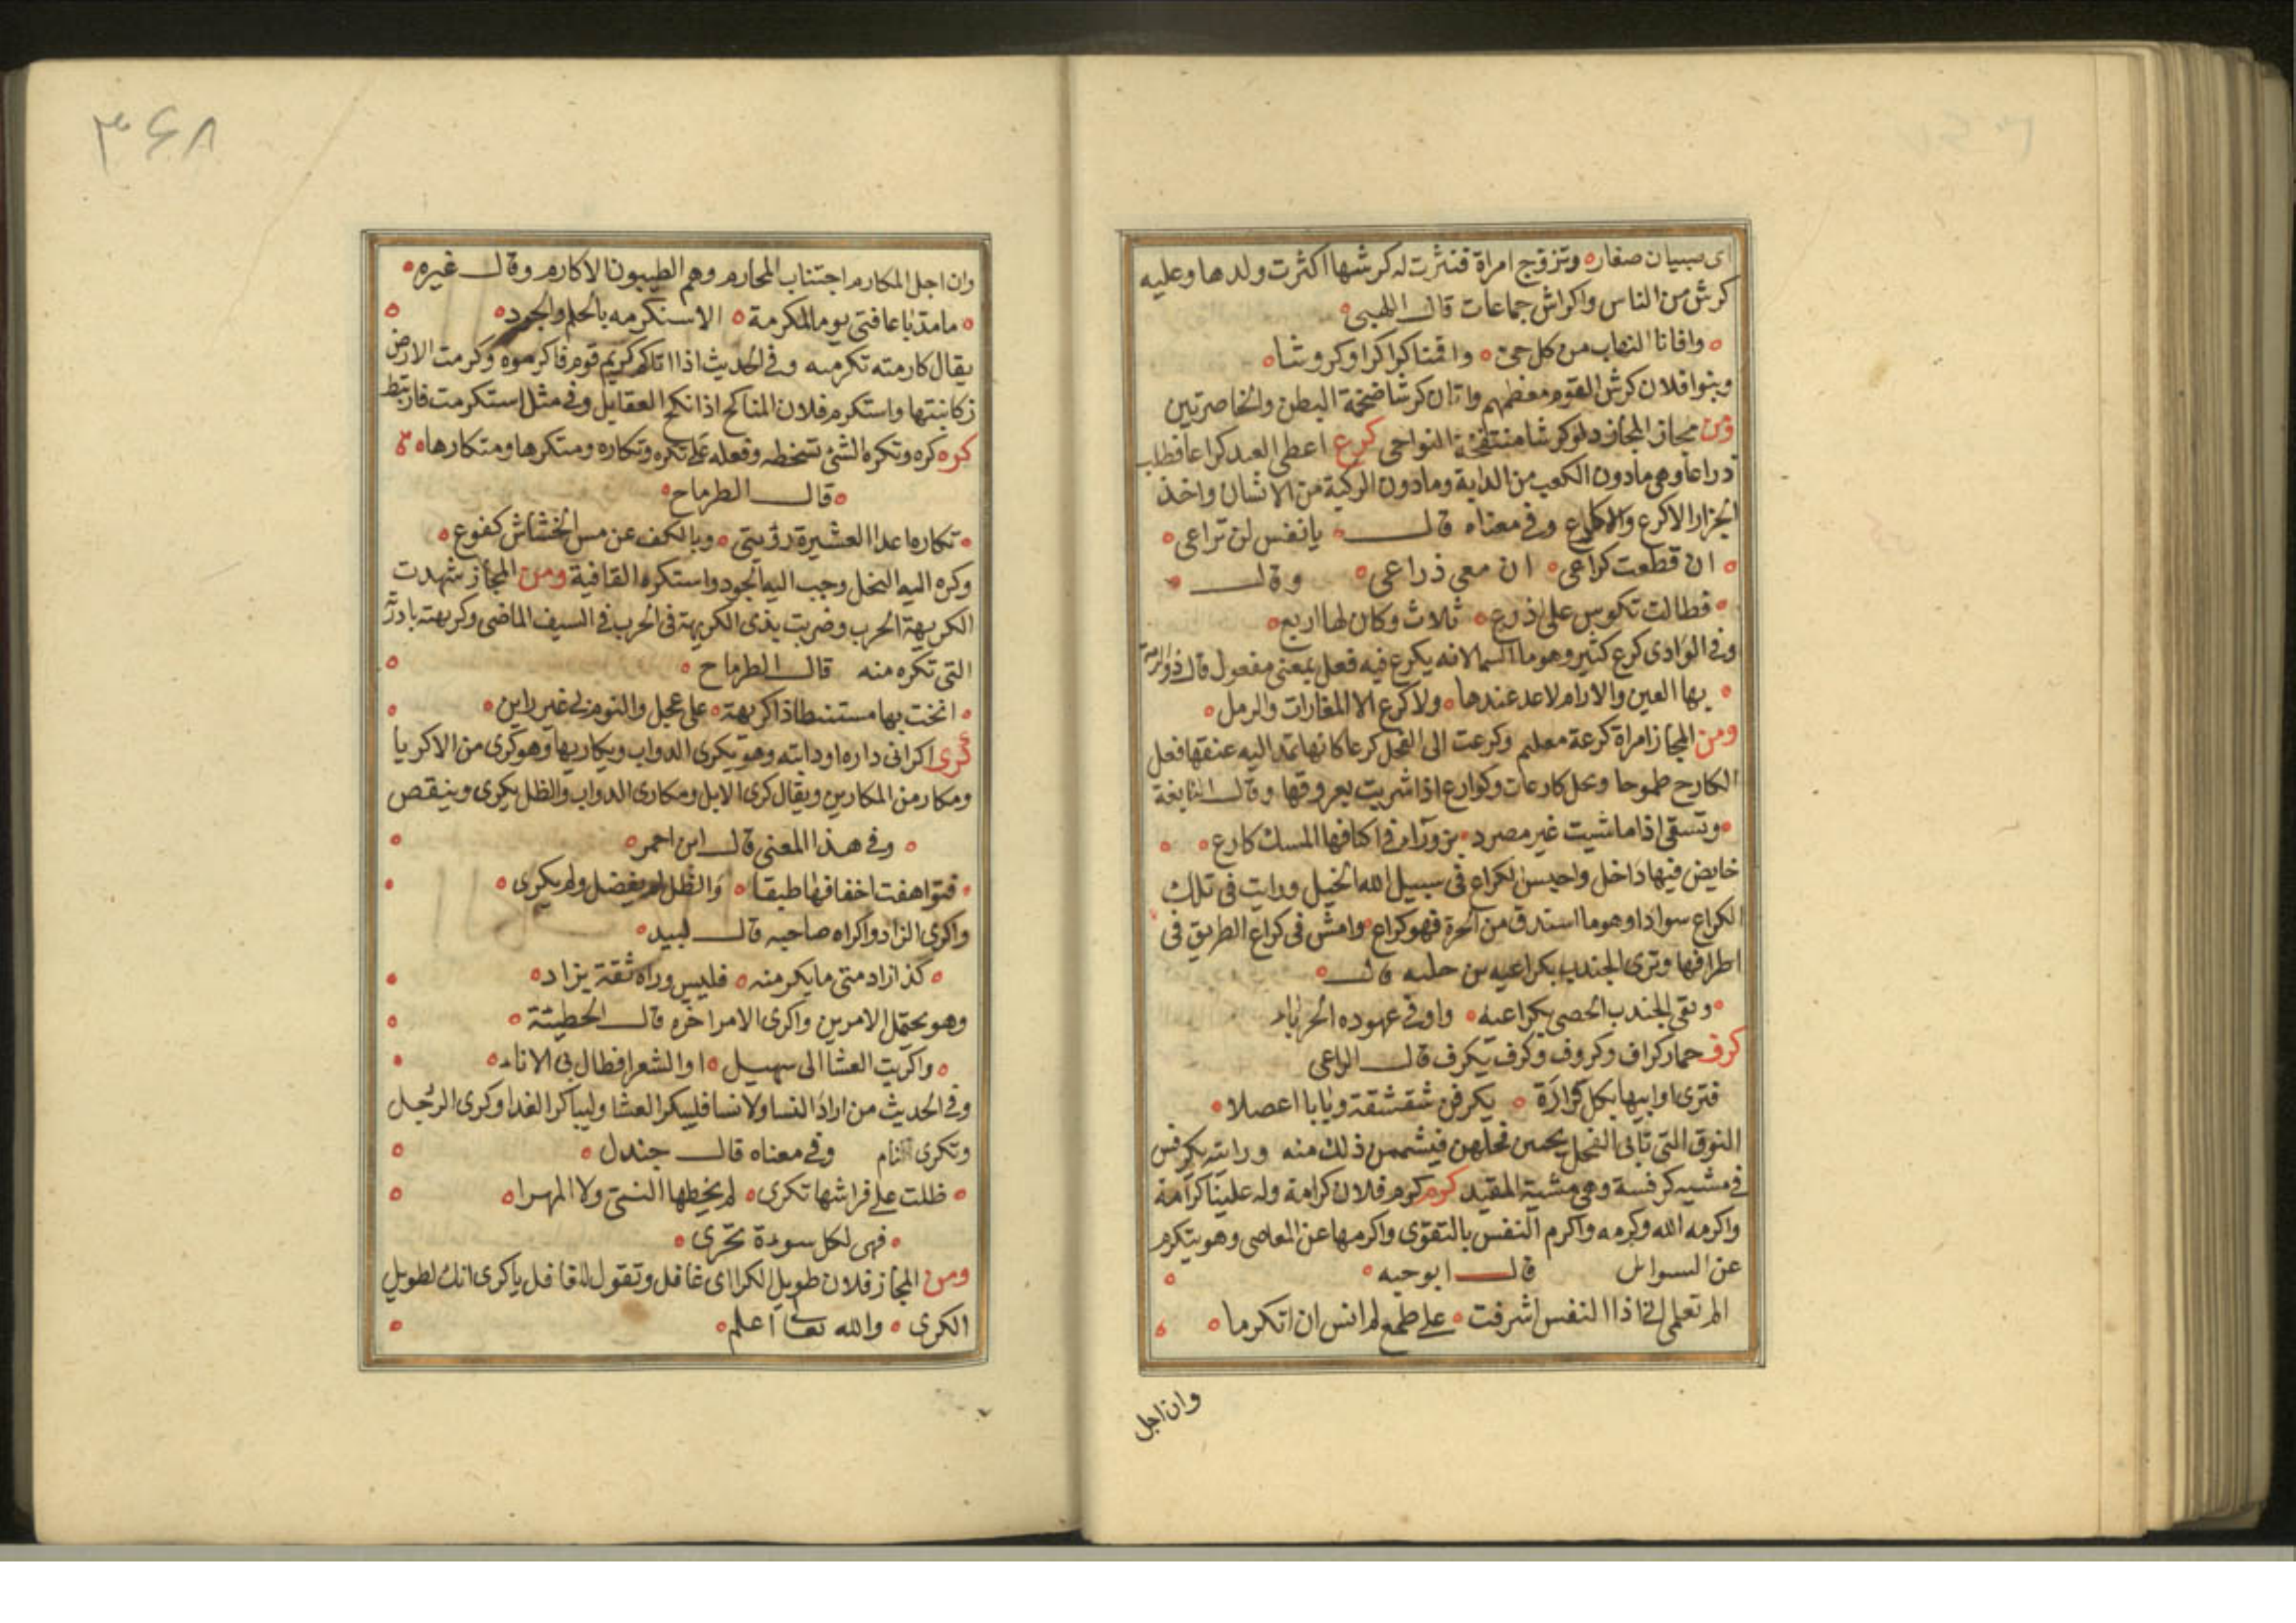 اى صبيان صغار وتزوج امراة فنثرت له كرشها اكثرت ولدها وعليه
كرش من الناس واكراش جماعات قال اللهبى
وافانا النهاب من كل حى واقمنا كراكرا وكروشا
وبنوا فلان كرش القوم معظمهم واتان كرشا ضخمة البطن والخاصرتين
ومن مجاز المجاز دلو كرشا منتفخة النواحى كرع اعطى العبد كراعا فطلب
ذراعا وهى مادون الكعب من الدابة ومادون الركبة من الانسان واخذ
الجزار الاكرع والاكارع وفى معناه قال يا نفس لن تراعى
ان قطعت كراعى ان معى ذراعى وقال
فظالت تكوس على اذرع ثلاث وكان لها اربع
وفى الوادى كرع كثير وهو ما السما لانه يكرع فيه فعل بمعنى مفعول قال ذوالرمة
بها العين والارام لاعد عندها ولا كرع الا المغارات والرمل
ومن المجاز امراة كرعة مغليم وكرعت الى الفحل كرعا كانها تمد اليه عنقها فعل
الكارع طموحا ونخل كارعات وكوارع اذا شربت بعروقها وقال النابغة
وتسقى اذا ماشيت غير مصرد بزورآء فى اكنافها المسك كارع
خايض فيها داخل واحبس الكراع فى سبيل الله الخيل ورايت فى تلك
الكراع سوادا وهو ما استدق من الحرة فهو كراع وامش فى كراع الطريق فى
اطرافها وترى الجندب بكراعيه قال
ونفى الجندب الحصى بكراعيه واوفى عوده الحرباء
كرف حمار كراف وكروف وكرف يكرف قال الراعى
فترى اوابيها بكل قرارة يكرفن شقشقة ونابا اعصلا
النوق التى تابى الفحل يحسن فحلهن فيشممن ذلك منه ورايته يكرفس
فى مشيه كرفسة وهى مشية المقيد كرم كرم فلان كرامة وله علينا كرامة
واكرمه الله وكرمه واكرم النفس بالتقوى واكرمها عن المعاصى وهو يتكرم
عن السوايل قال ابوحيه
الم تعلمى انى اذا النفس اشرفت على طمع لم انس ان اتكرما
وان اجل
٣۶٨
وان اجل المكارم اجتناب المحارم وهم الطيبون الاكارم وقال غيره
ما مد باعا فتى يوما لمكرمة الا ستكرمه بالحلم والجود
يقال كارمته تكرمه وفى الحديث اذا اتاكم كريم قوم فاكرموه وكرمت الارض
زكا نبتها واستكرم فلان المناكح اذا نكح العقايل وفى مثل استكرمت فارتبط
كره كره وتكره الشئ تسخطه وفعله على تكره وتكاره ومتكرها ومتكارها
قال الطرماح
تكاره اعدا العشيرة رؤيتى وبالكف عن مس الخشاش كفوع
وكره اليه البخل وحبب اليه الجود واستكره القافية ومن المجاز شهدت
الكريهة الحرب وضربت بذى الكريهة فى الحرب فى السيف الماضى وكريهته بادرته
التى تكره منه قال الطرماح
انخت بها مستنبطا ذا كريهة على عجل والنوم بى غير راين
كرى اكرانى داره او دابته وهو يكرى الدواب ويكاريها وهو كرى من الاكريا
ومكار من المكارين ويقال كرى الابل ومكارى الدواب والظل يكرى وينقص
وفى هذا المعنى قال ابن احمر
فتواهقت اخفافها طبقا والظل لم يفضل ولم يكرى
واكرى الزاد واكراه صاحبه قال لبيد
كذا زاد متى ما يكر منه فليس وراه ثقة بزاد
وهو يحتمل الامرين واكرى الامر اخره قال الحطيئة
واكريت العشا الى سهيل او الشعرا فطال بى الاناء
وفى الحديث من اراد النسا ولا نسا فليكر العشا وليباكر الغدا وكرى الرجل
وتكرى نام وفى معناه قال جندل
ظلت على فراشها تكرى لم يخطها النى ولا المهرا
فهى لكل سودة تحرى
ومن المجاز فلان طويل الكرا اى غافل وتقول للغافل ياكرى انك لطويل
الكرى والله تعالى اعلم